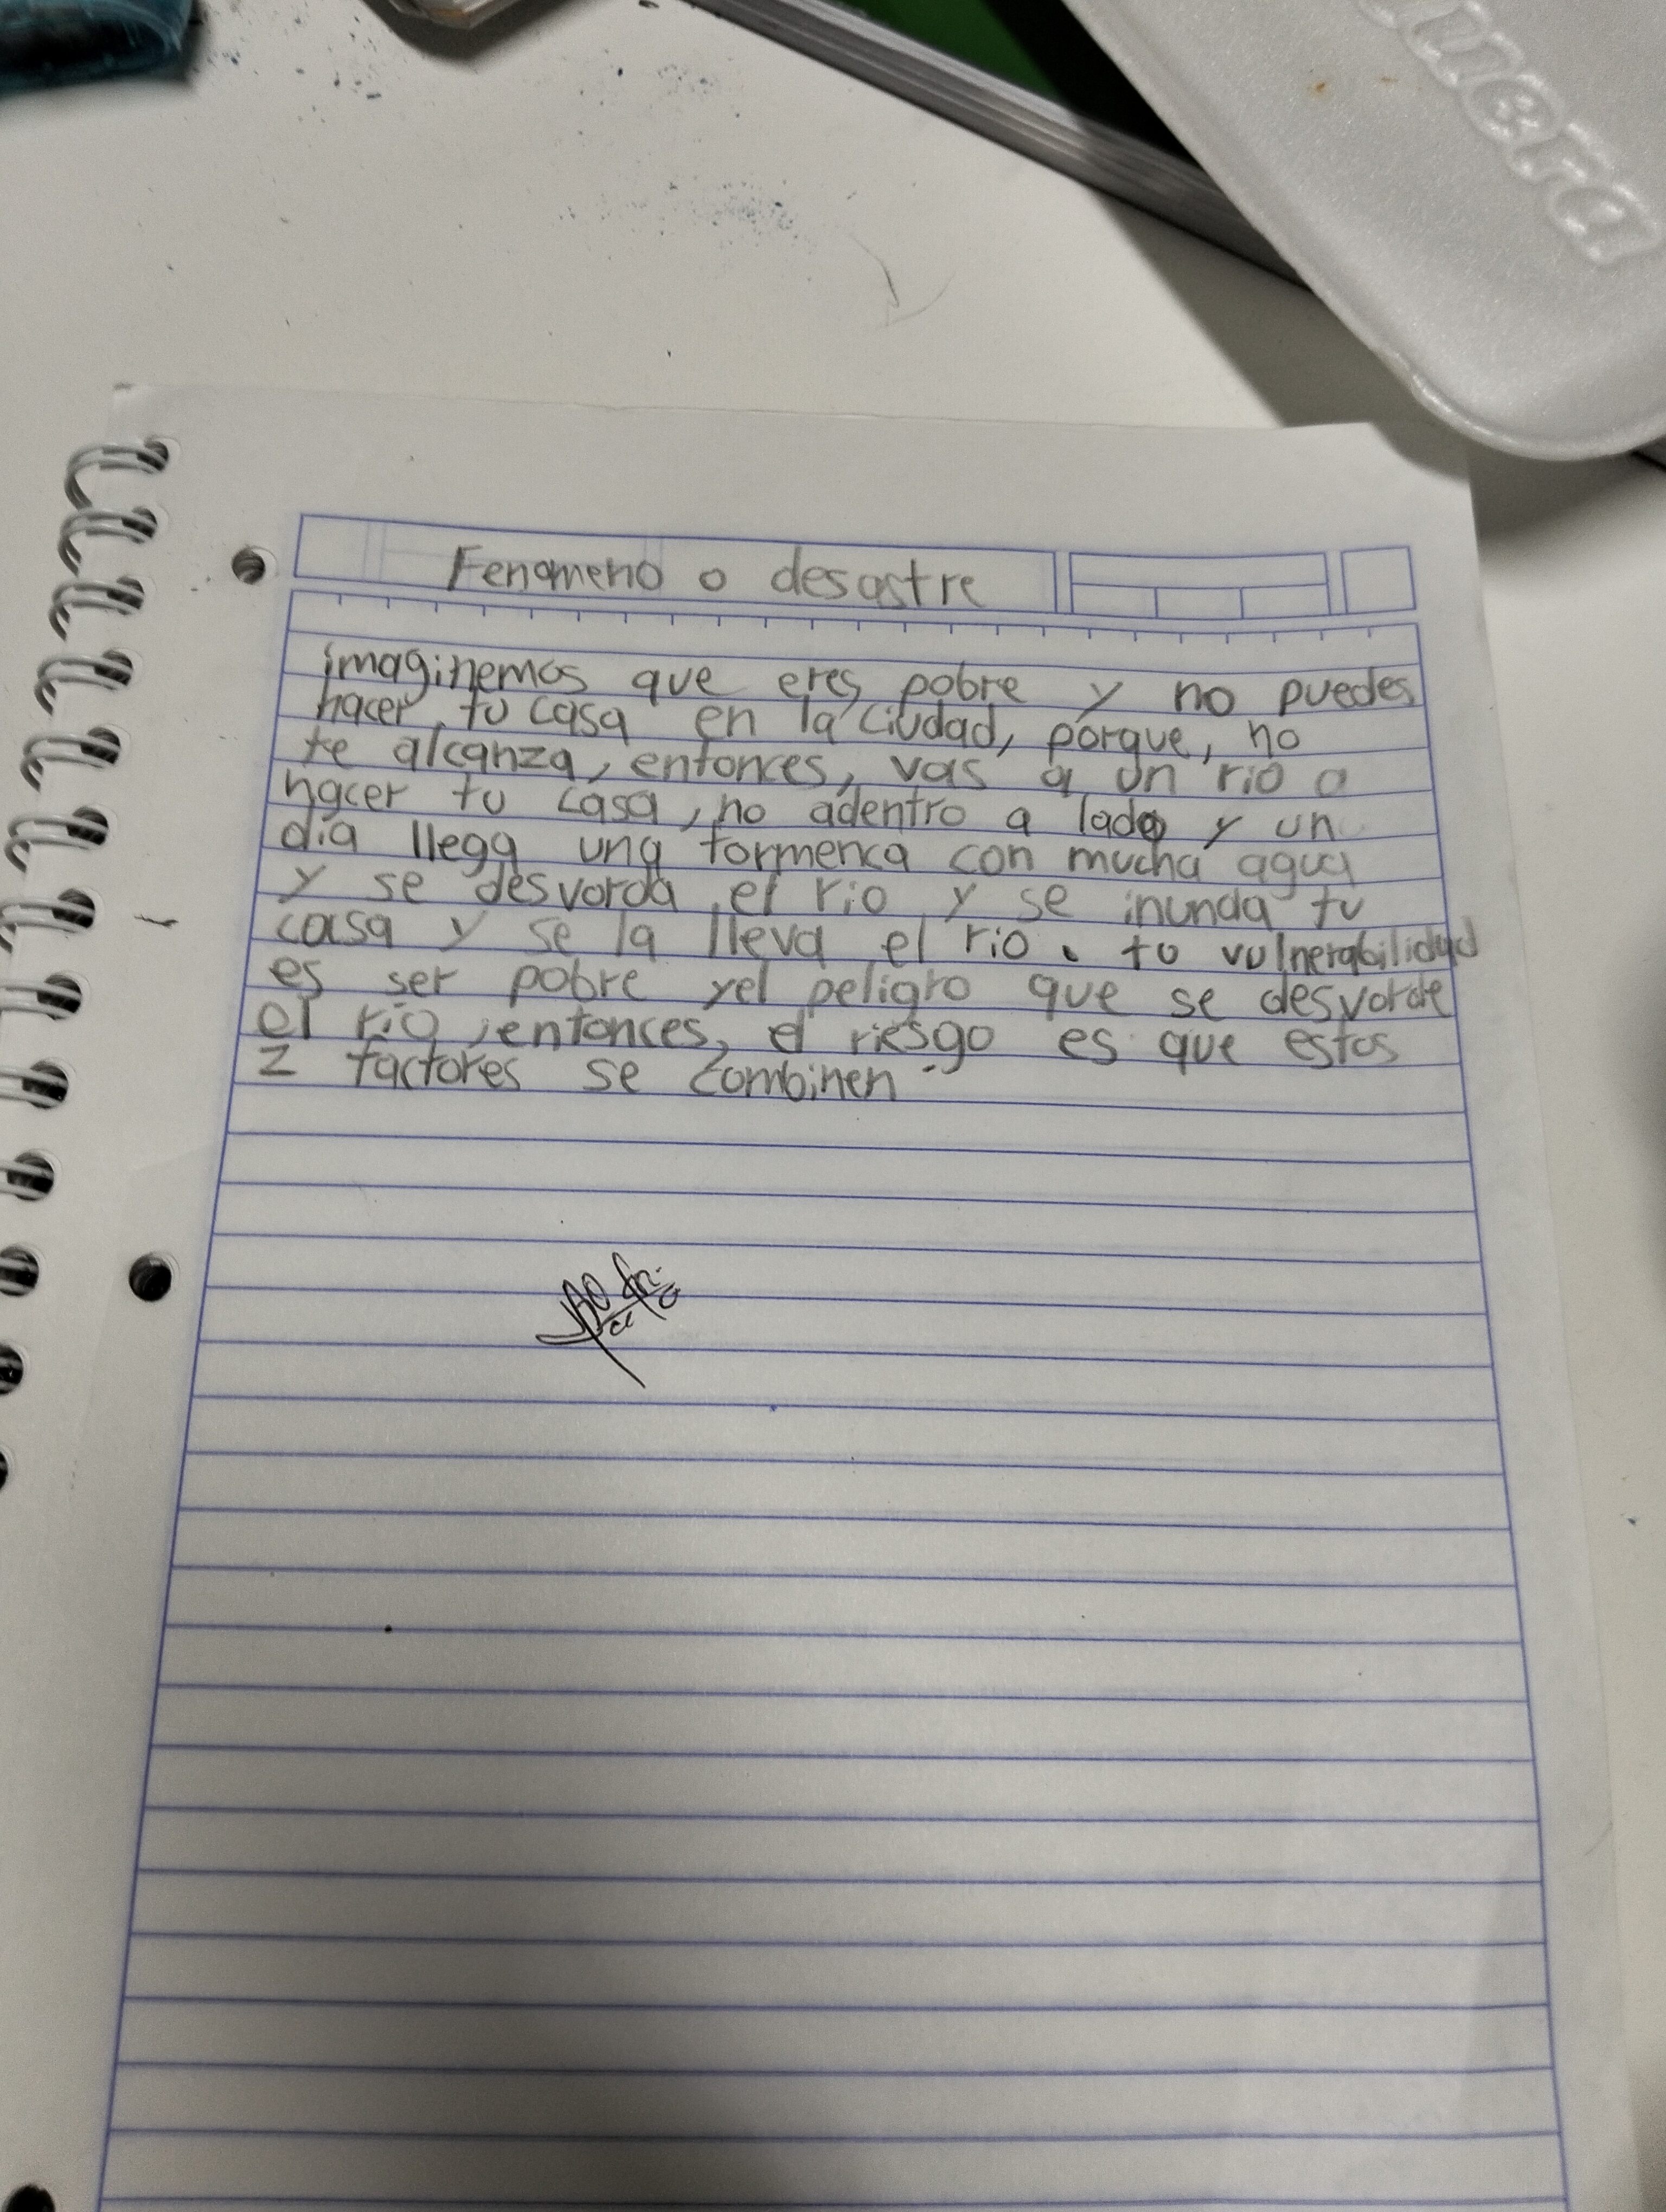 unera
Fenomeno o desastre
imaginemos que eres pobre y no puedes
hacer tu casa en la ciudad, porque, no
te alcanza, entonces, vas a un rio a
hacer tu casa, no adentro a lado y un
dia llega una tormenta con mucha agua
y se desvorda el rio y se inunda tu
casa y se la lleva el rio. tu vulnerabilidad
es ser pobre y el peligro que se desvorde
el rio, entonces, el riesgo es que estos
2 factores se combinen.